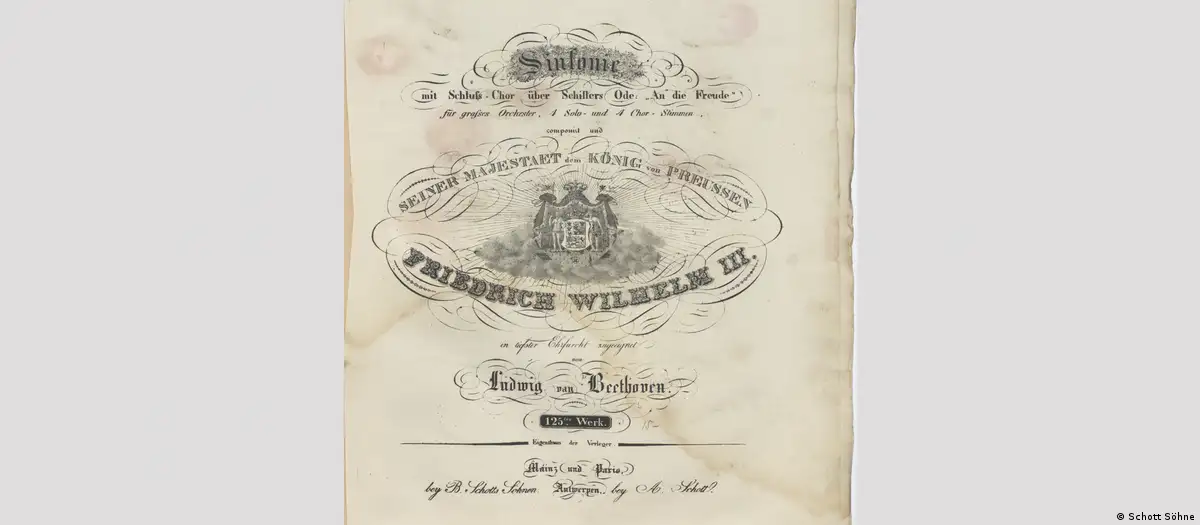 Sinfonie
mit Schluß-Chor über Schillers Ode: „An die Freude“
für großes Orchester, 4 Solo- und 4 Chor-Stimmen,
componirt und
SEINER MAJESTAET dem KÖNIG von PREUSSEN
FRIEDRICH WILHELM III.
in tiefster Ehrfurcht zugeeignet
von
Ludwig van Beethoven.
125tes Werk.
Eigenthum der Verleger
Mainz und Paris,
bey B. Schotts Söhnen. Antwerpen, bey A. Schott.
© Schott Söhne